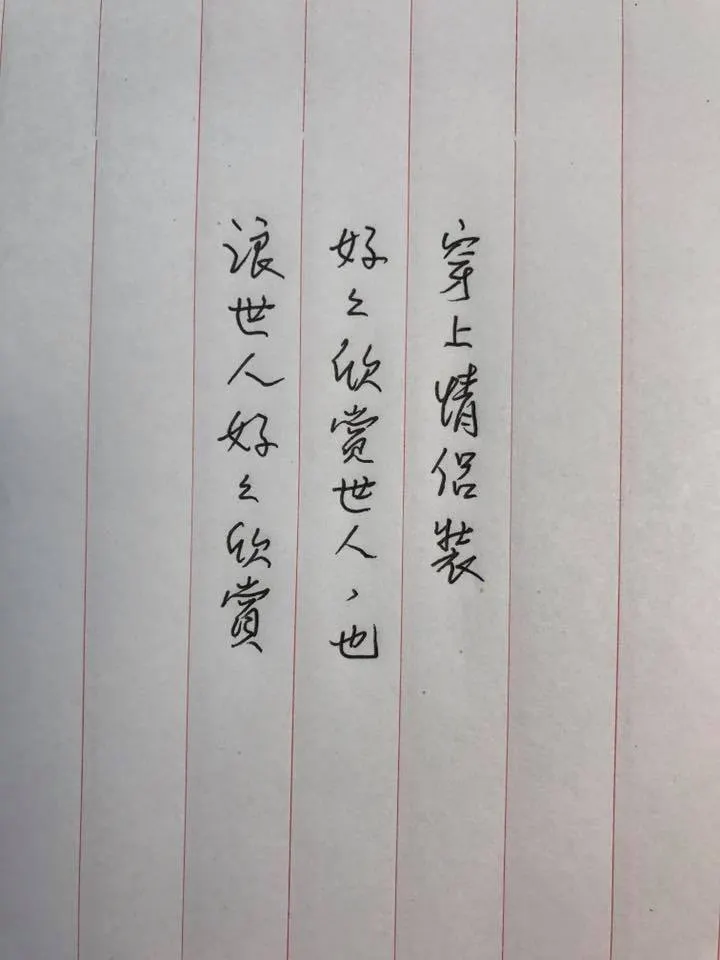 穿上情侶裝
好々欣賞世人，也
讓世人好々欣賞